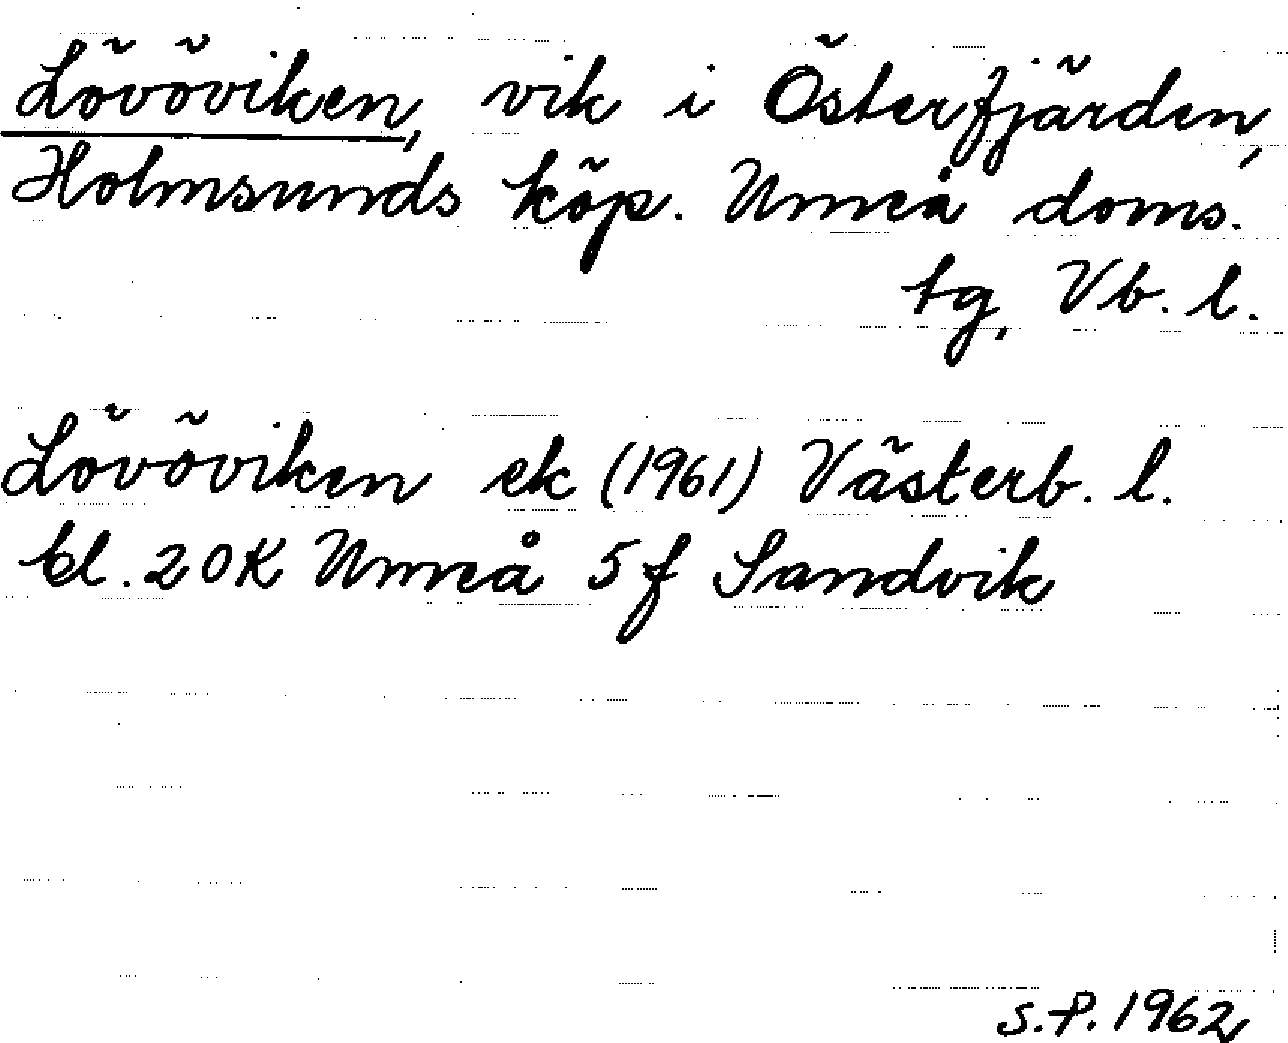 Lövöviken, vik i Österfjärden,
Holmsunds köp. Umeå doms.
tg, Vb. l.
Lövöviken ek (1961) Västerb. l.
bl. 20K Umeå 5f Sandvik
S.P. 1962